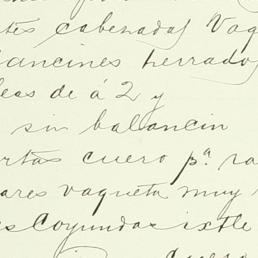 tes cabezadas Vaq
lancines herrados
leas de á 2 y
sin balancin
rtas cuero pª. ra
ares vaqueta muy
es Coyundas ixtle
cuero